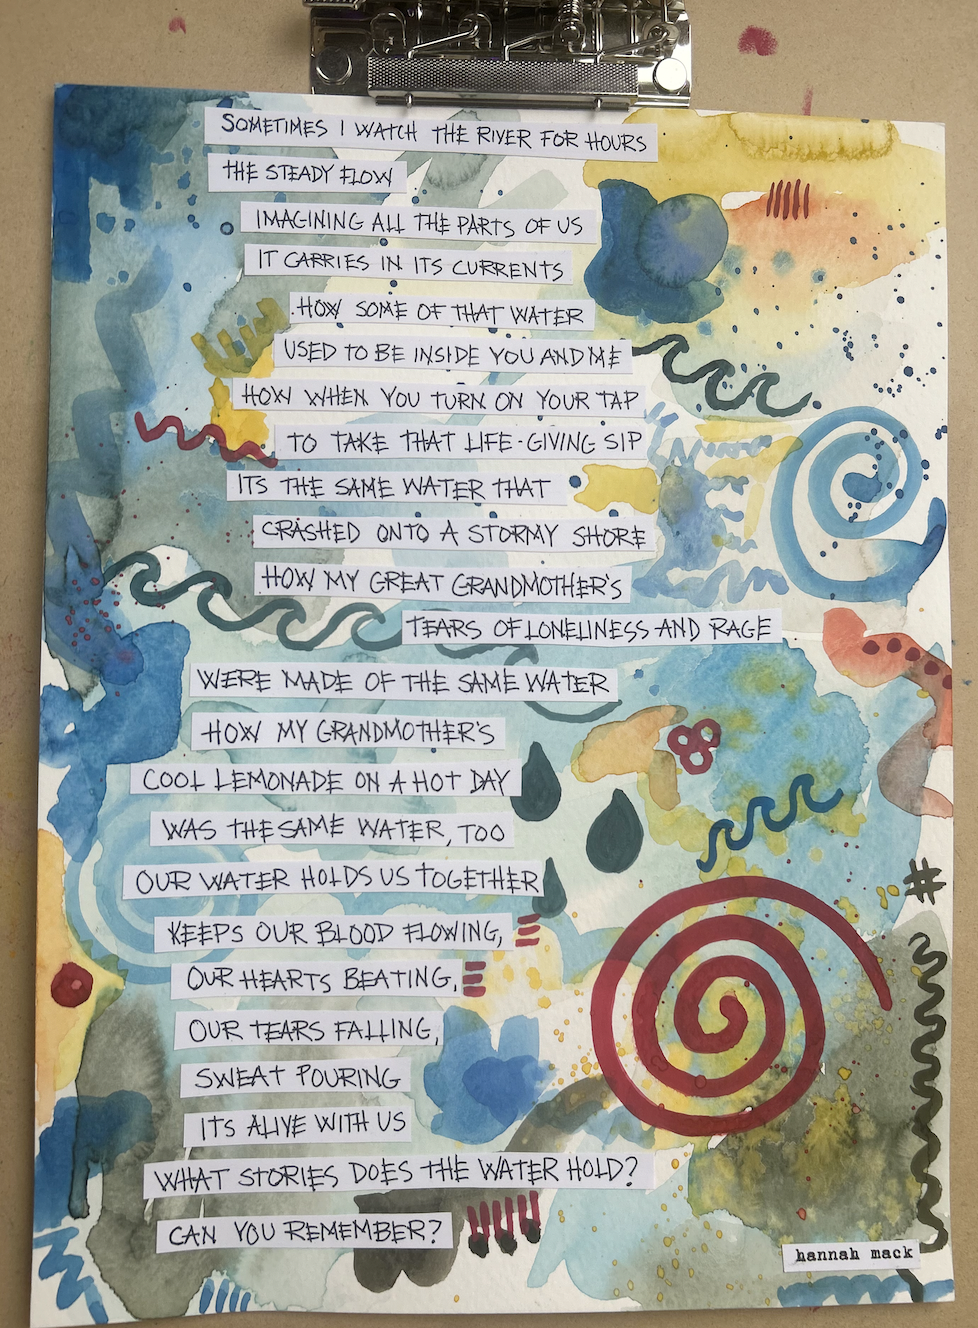 SOMETIMES I WATCH THE RIVER FOR HOURS
THE STEADY FLOW
IMAGINING ALL THE PARTS OF US
IT CARRIES IN ITS CURRENTS
HOW SOME OF THAT WATER
USED TO BE INSIDE YOU AND ME
HOW WHEN YOU TURN ON YOUR TAP
TO TAKE THAT LIFE-GIVING SIP
ITS THE SAME WATER THAT
CRASHED ONTO A STORMY SHORE
HOW MY GREAT GRANDMOTHER'S
TEARS OF LONELINESS AND RAGE
WERE MADE OF THE SAME WATER
HOW MY GRANDMOTHER'S
COOL LEMONADE ON A HOT DAY
WAS THE SAME WATER, TOO
OUR WATER HOLDS US TOGETHER
KEEPS OUR BLOOD FLOWING,
OUR HEARTS BEATING,
OUR TEARS FALLING,
SWEAT POURING
ITS ALIVE WITH US
WHAT STORIES DOES THE WATER HOLD?
CAN YOU REMEMBER?
hannah mack